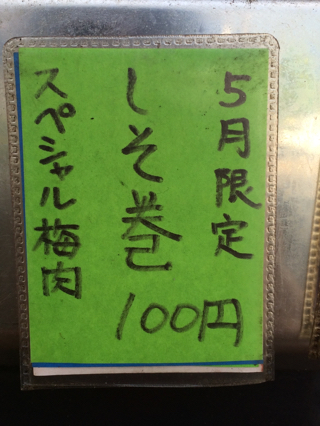 5月限定
しそ巻
100円
スペシャル梅肉